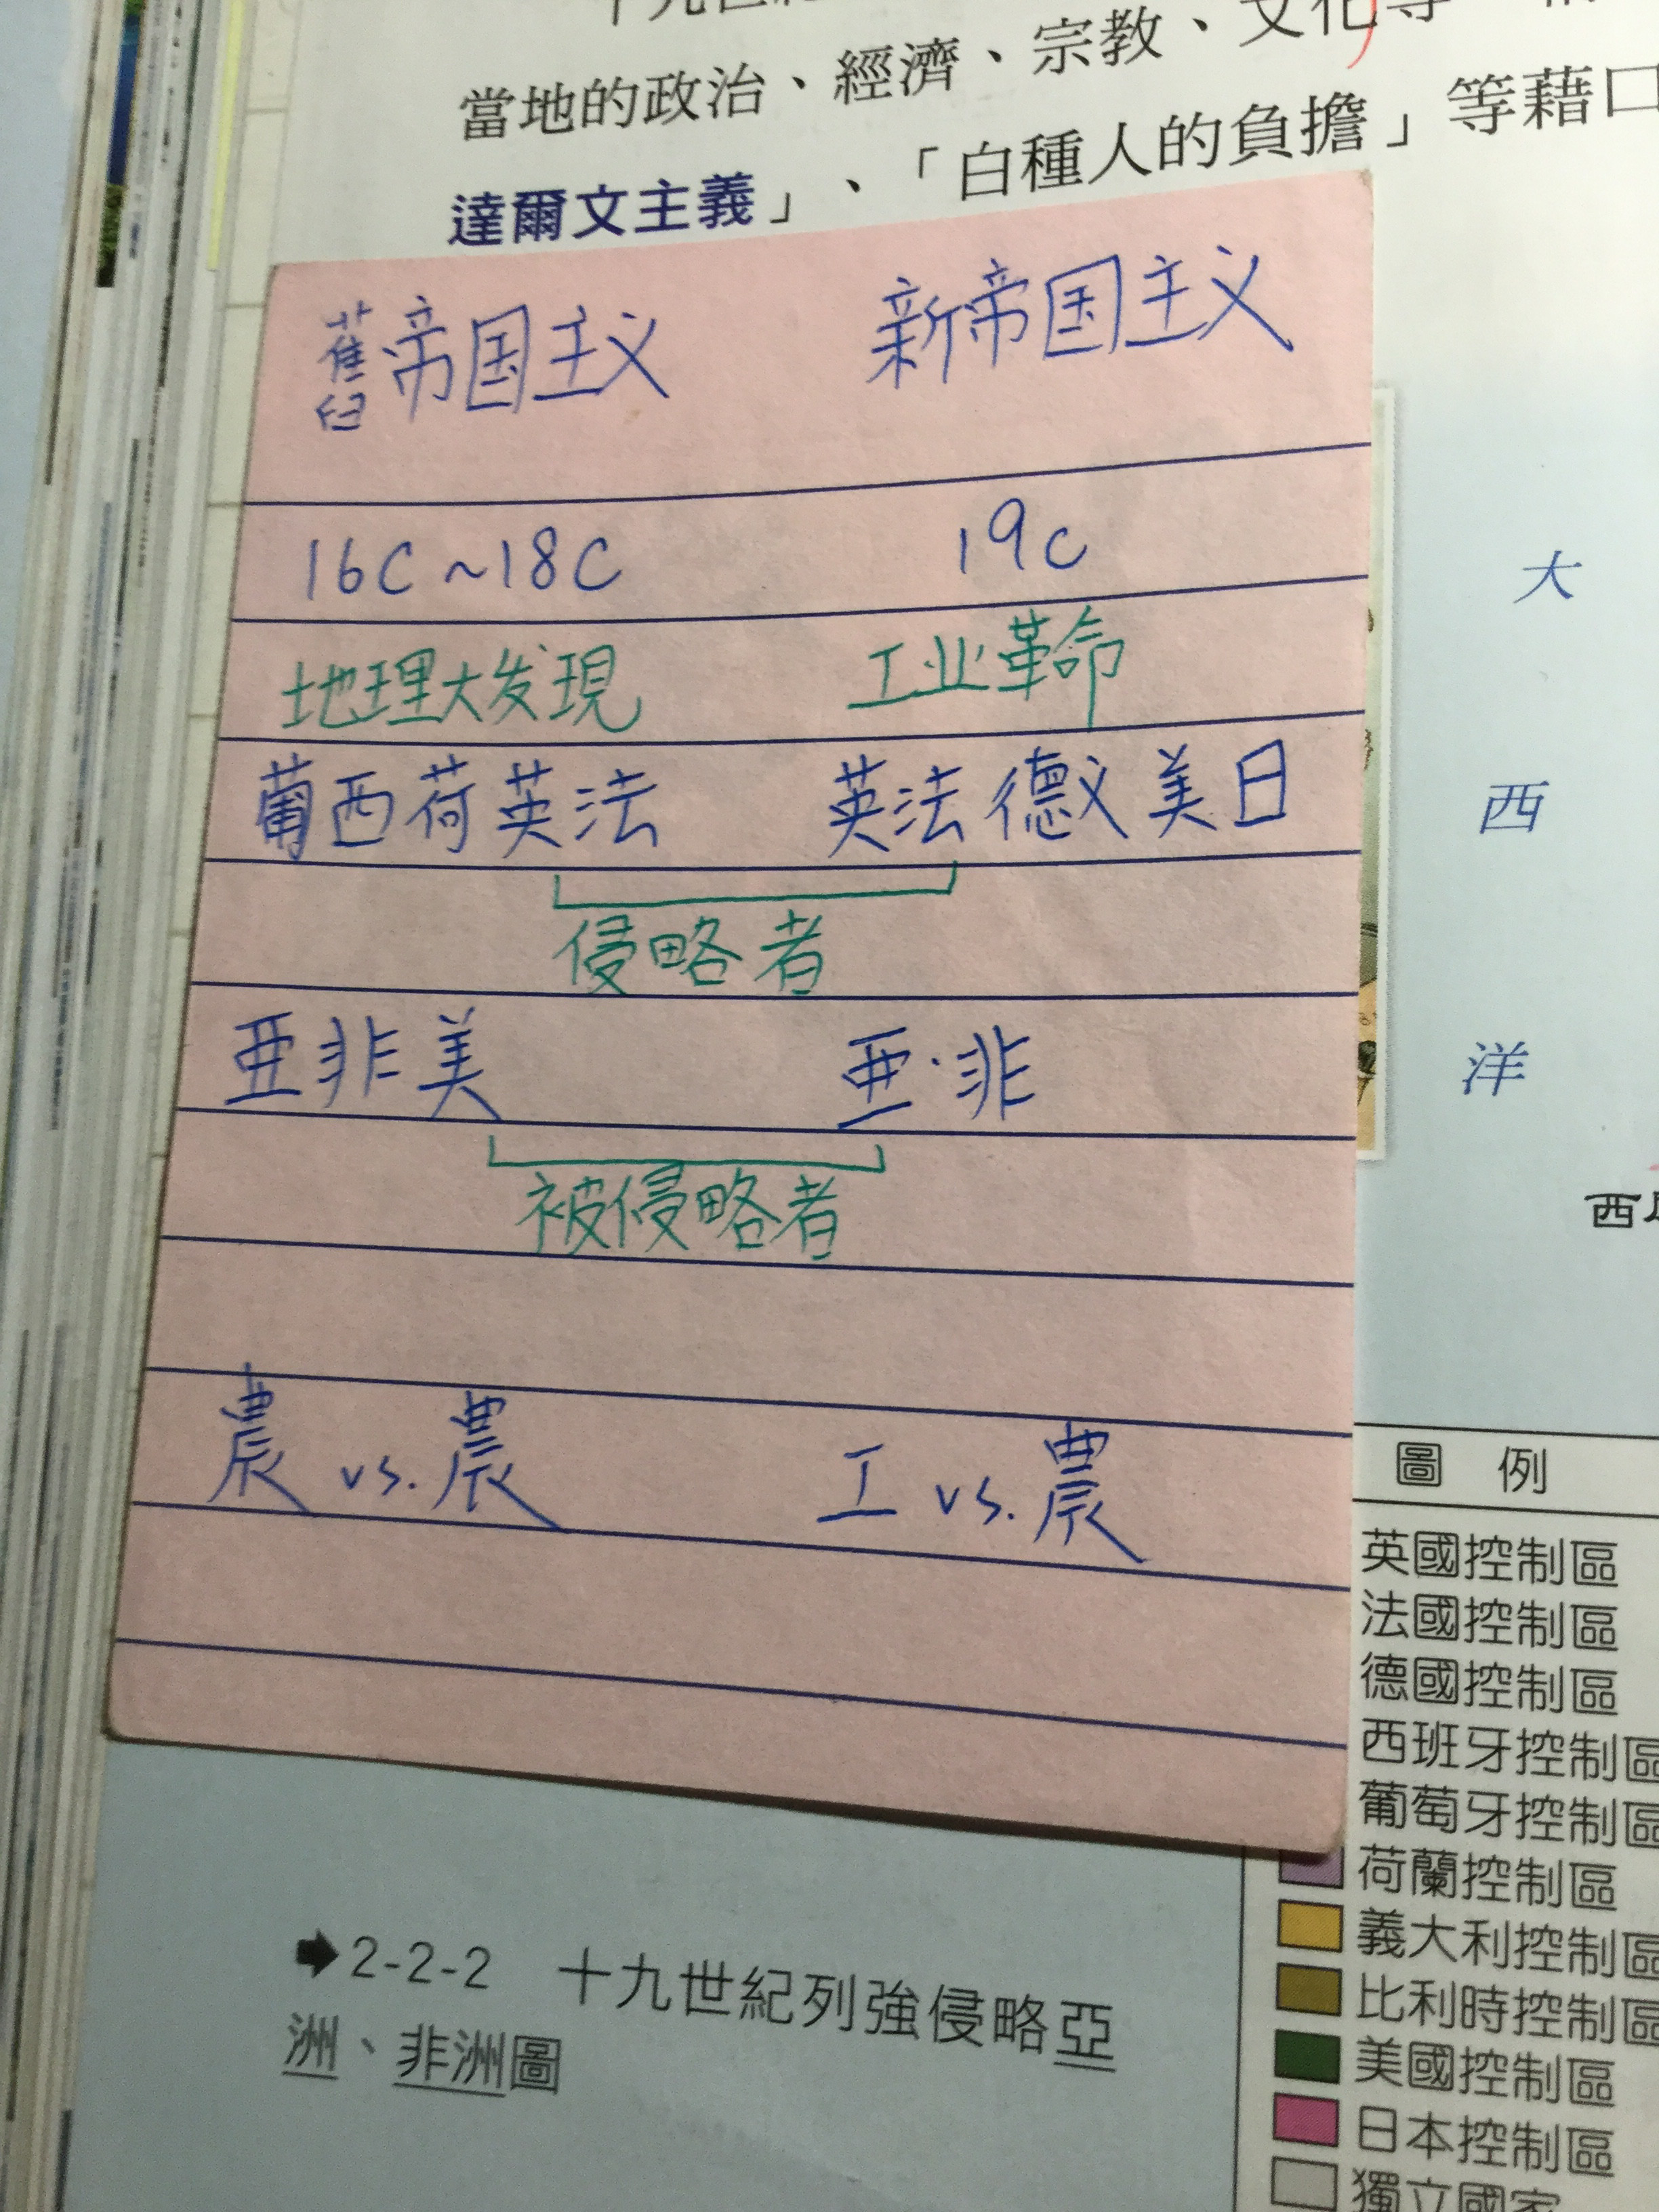 當地的政治、經濟、宗教、文化等
達爾文主義」、「白種人的負擔」等藉口
舊帝国主义 新帝国主义
16C~18C 19c
地理大发現 工业革命
葡西荷英法 英法德义美日
侵略者
亜非美 亜·非
被侵略者
農 vs. 農 工 vs. 農
大
西
洋
圖 例
英國控制區
法國控制區
德國控制區
西班牙控制區
葡萄牙控制區
荷蘭控制區
義大利控制區
比利時控制區
美國控制區
日本控制區
獨立國家
➡2-2-2 十九世紀列強侵略亞
洲、非洲圖